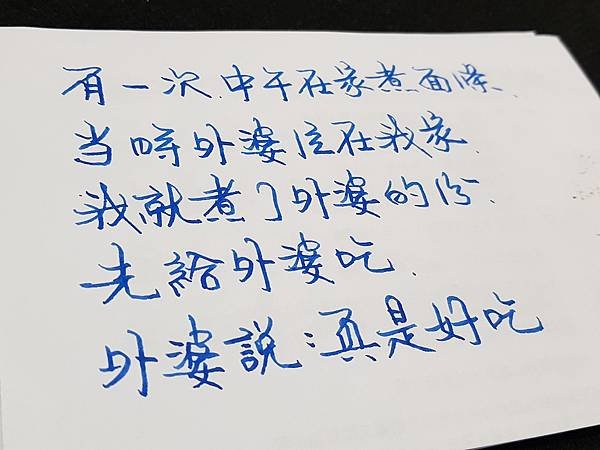 有一次.中午在家煮面條、
当時外婆住在我家.
我就煮了外婆的份.
先給外婆吃.
外婆說:真是好吃